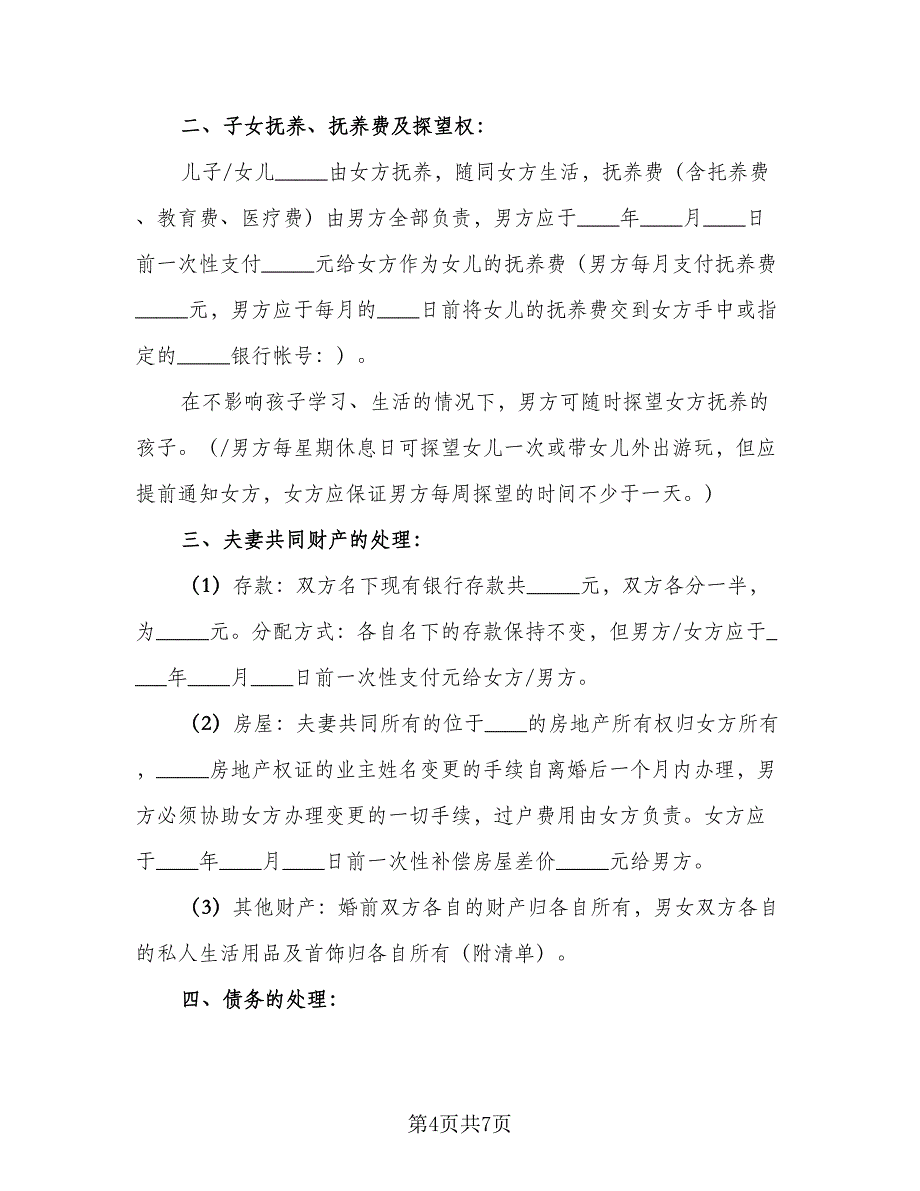 二、子女抚养、抚养费及探望权：
儿子/女儿_____由女方抚养，随同女方生活，抚养费（含托养费
、教育费、医疗费）由男方全部负责，男方应于____年____月____日
前一次性支付_____元给女方作为女儿的抚养费（男方每月支付抚养费
_____元，男方应于每月的____日前将女儿的抚养费交到女方手中或指
定的_____银行帐号：）。
在不影响孩子学习、生活的情况下，男方可随时探望女方抚养的
孩子。（/男方每星期休息日可探望女儿一次或带女儿外出游玩，但应
提前通知女方，女方应保证男方每周探望的时间不少于一天。）
三、夫妻共同财产的处理：
（1）存款：双方名下现有银行存款共_____元，双方各分一半，
为_____元。分配方式：各自名下的存款保持不变，但男方/女方应于_
___年____月____日前一次性支付元给女方/男方。
（2）房屋：夫妻共同所有的位于____的房地产所有权归女方所有
，_____房地产权证的业主姓名变更的手续自离婚后一个月内办理，男
方必须协助女方办理变更的一切手续，过户费用由女方负责。女方应
于____年____月____日前一次性补偿房屋差价_____元给男方。
（3）其他财产：婚前双方各自的财产归各自所有，男女双方各自
的私人生活用品及首饰归各自所有（附清单）。
四、债务的处理：
第4页共7页